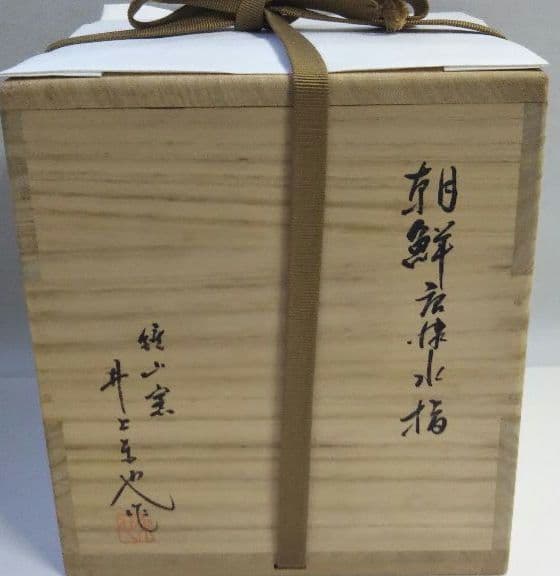 朝鮮唐津水指
鏡山窯
井上東也作